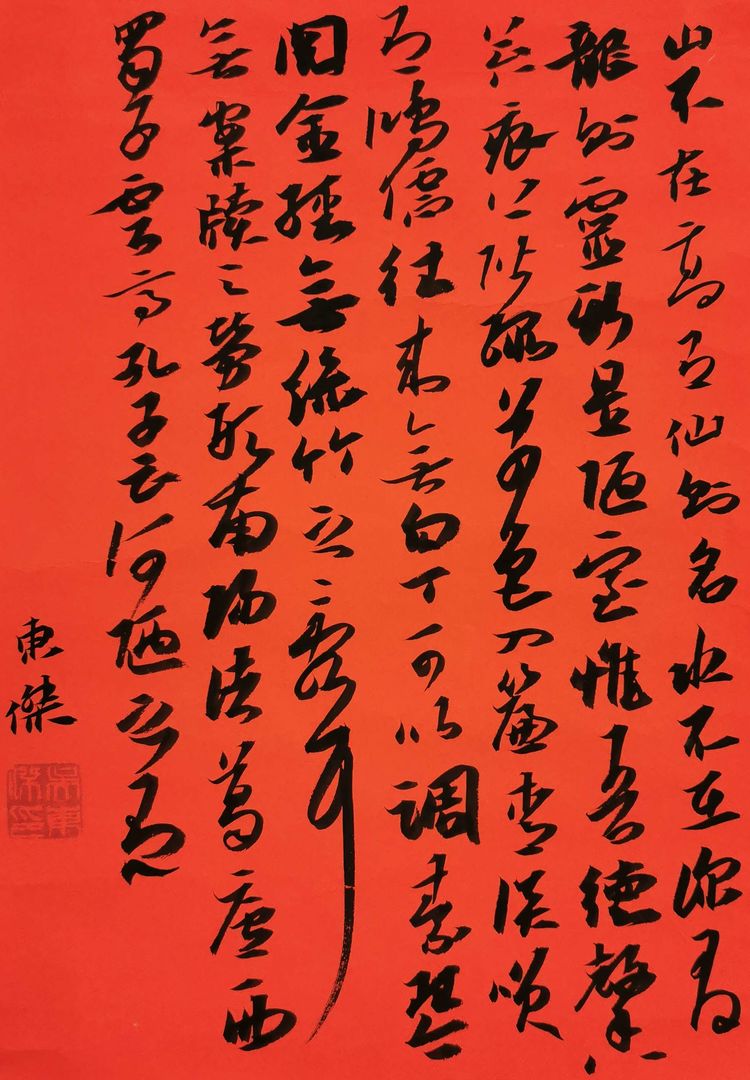 山不在高有仙則名水不在深有
龍則靈斯是陋室惟吾德馨
苔痕上階綠草色入簾青談笑
有鴻儒往來無白丁可以調素琴
閱金經無絲竹之亂耳
無案牘之勞形南陽諸葛廬西
蜀子雲亭孔子云何陋之有
東傑
吳東傑印